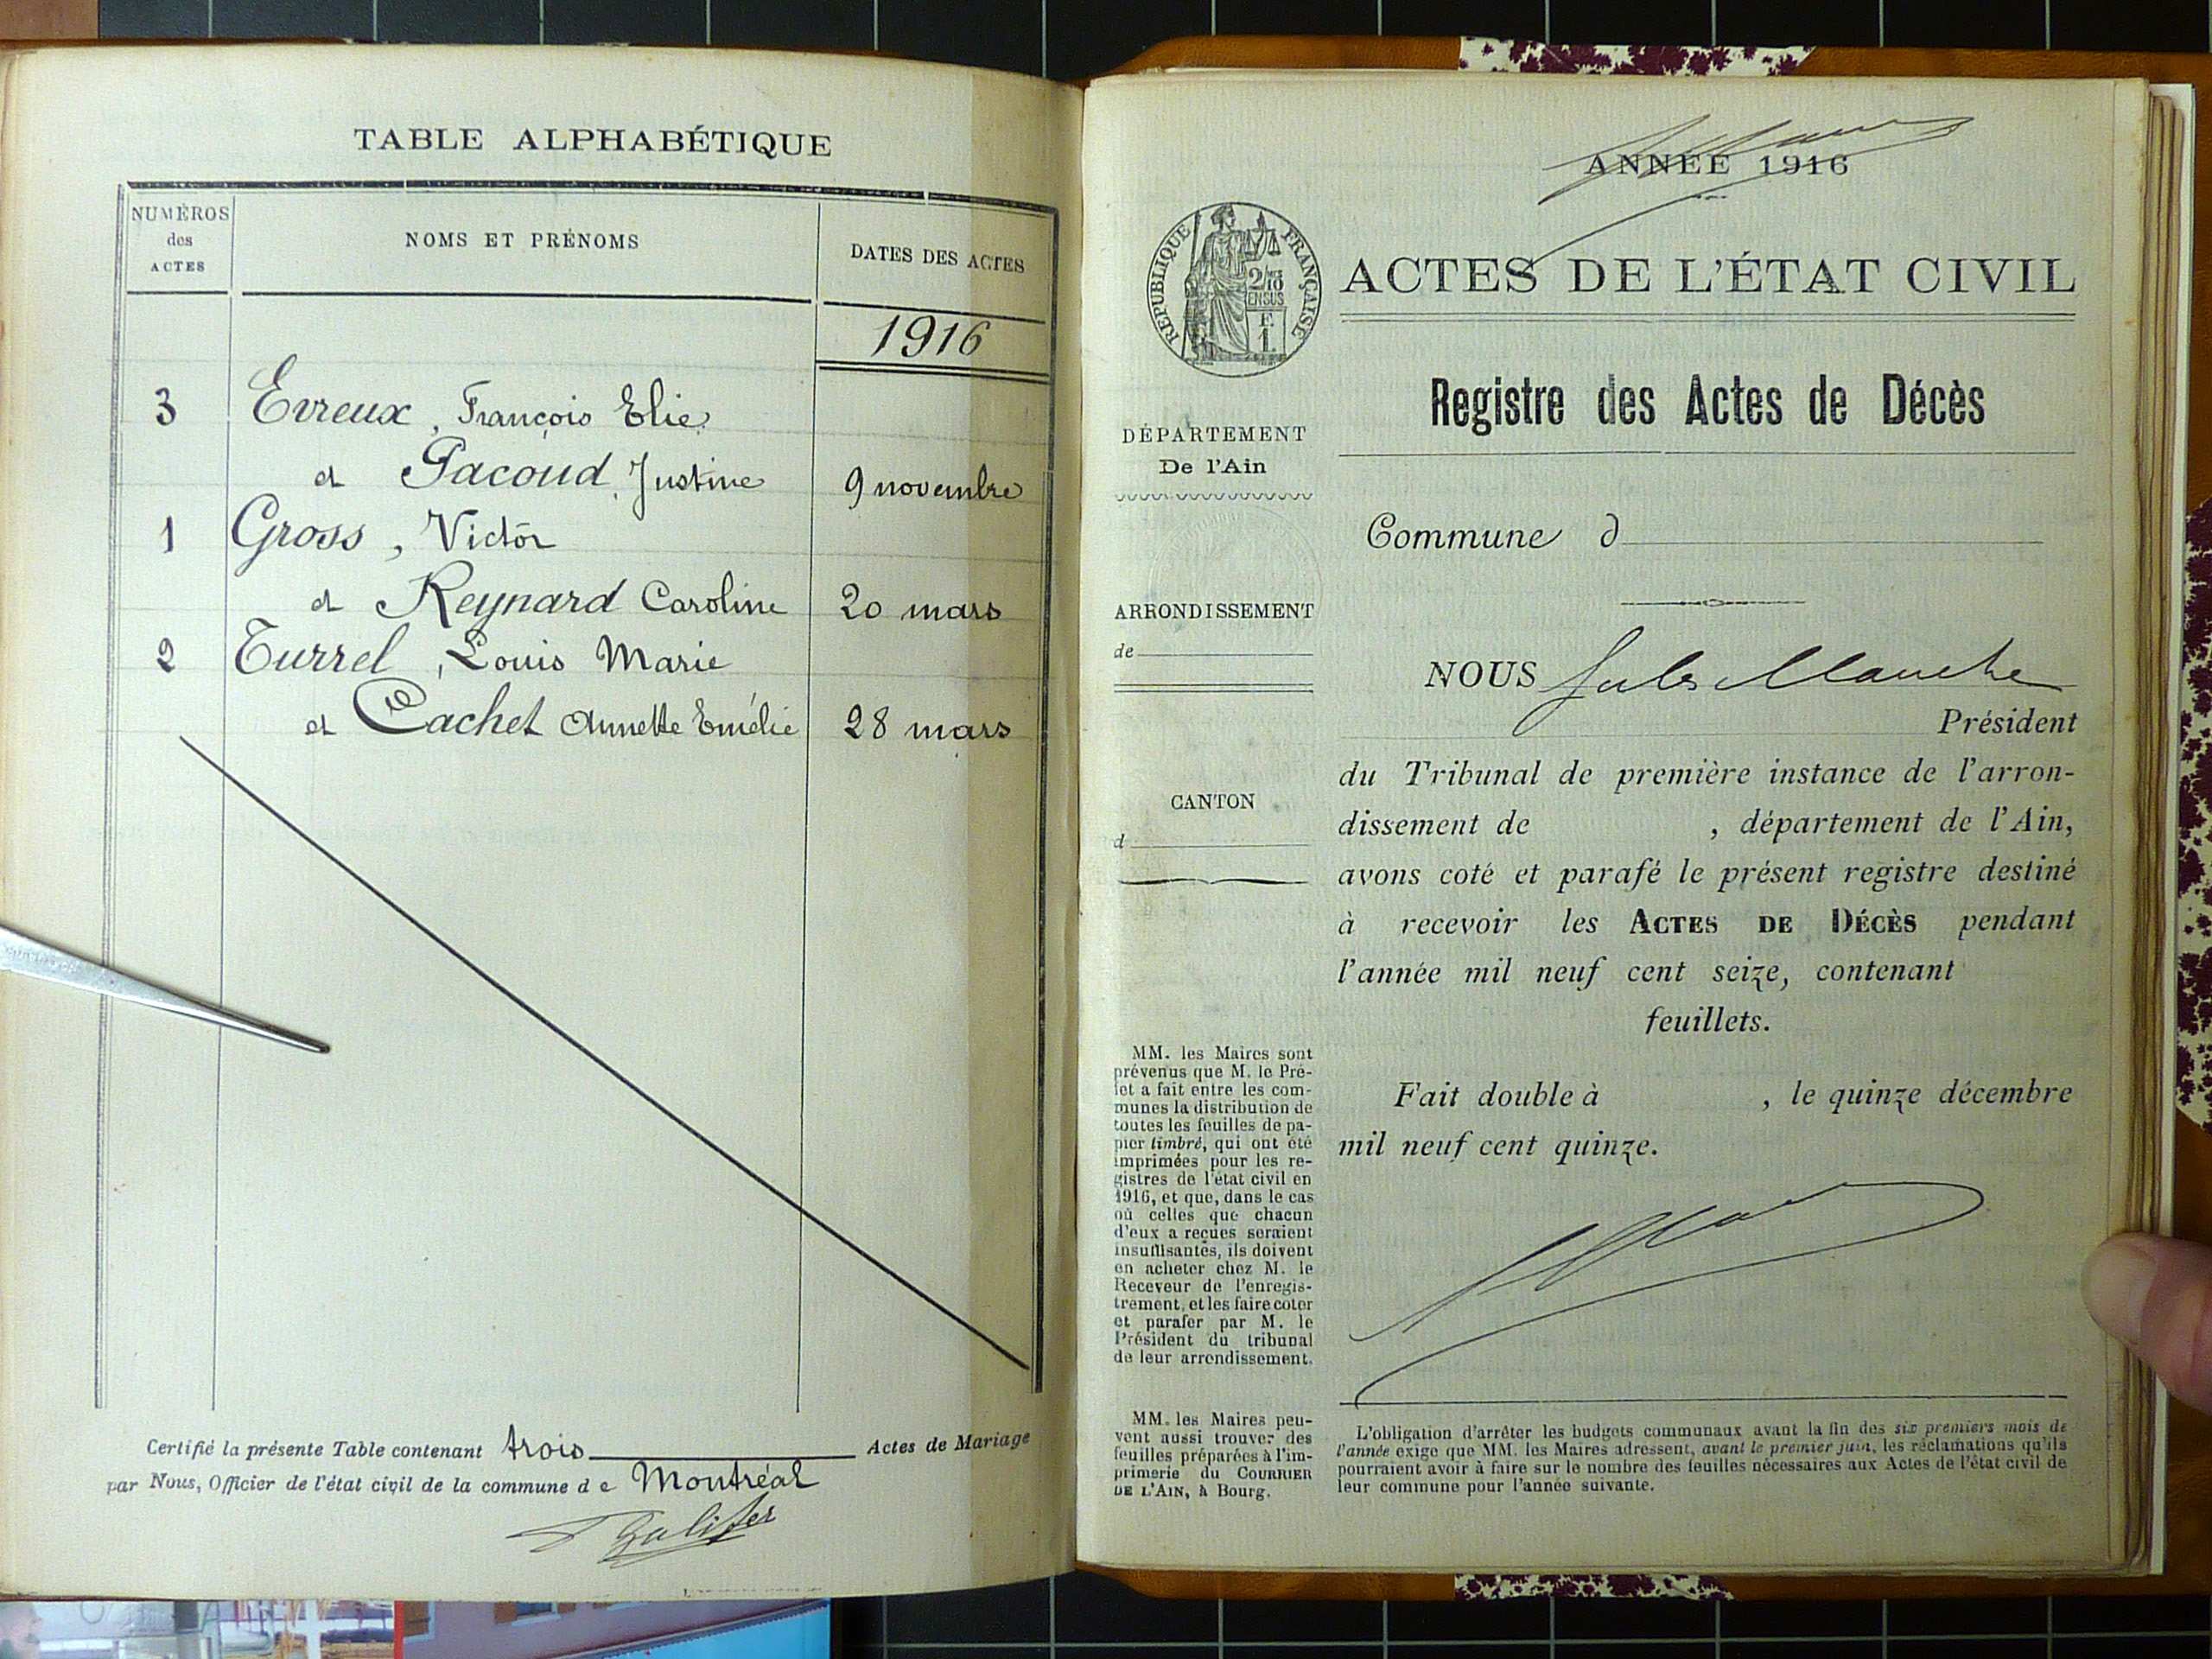 TABLE ALPHABÉTIQUE
NUMÉROS
des
ACTES
NOMS ET PRÉNOMS
DATES DES ACTES
1916
3 Evreux, François Elie
et Pacoud, Justine 9 novembre
1 Gross, Victor
et Reynard Caroline 20 mars
2 Turrel, Louis Marie
et Cachet Annette Emélie 28 mars
Certifié la présente Table contenant trois Actes de Mariage
par Nous, Officier de l'état civil de la commune de Montréal
ANNÉE 1916
RÉPUBLIQUE FRANÇAISE
ACTES DE L'ÉTAT CIVIL
Registre des Actes de Décès
DÉPARTEMENT
De l'Ain
Commune d
ARRONDISSEMENT
de
NOUS Jules
Président
du Tribunal de première instance de l'arron-
dissement de , département de l'Ain,
avons coté et parafé le présent registre destiné
à recevoir les ACTES DE DÉCÈS pendant
l'année mil neuf cent seize, contenant
feuillets.
Fait double à , le quinze décembre
mil neuf cent quinze.
CANTON
d
MM. les Maires sont
prévenus que M. le Pré-
fet a fait entre les com-
munes la distribution de
toutes les feuilles de pa-
pier timbré, qui ont été
imprimées pour les re-
gistres de l'état civil en
1916, et que, dans le cas
où celles que chacun
d'eux a reçues seraient
insuffisantes, ils doivent
en acheter chez M. le
Receveur de l'enregis-
trement, et les faire coter
et parafer par M. le
Président du tribunal
de leur arrondissement.
MM. les Maires peu-
vent aussi trouver des
feuilles préparées à l'im-
primerie du COURRIER
DE L'AIN, à Bourg.
L'obligation d'arrêter les budgets communaux avant la fin des six premiers mois de
l'année exige que MM. les Maires adressent, avant le premier juin, les réclamations qu'ils
pourraient avoir à faire sur le nombre des feuilles nécessaires aux Actes de l'état civil de
leur commune pour l'année suivante.